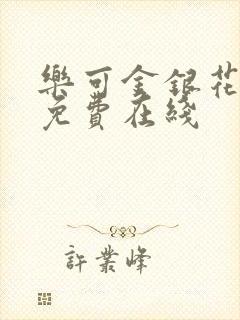 樂可金銀花
免費在綫
許業峰